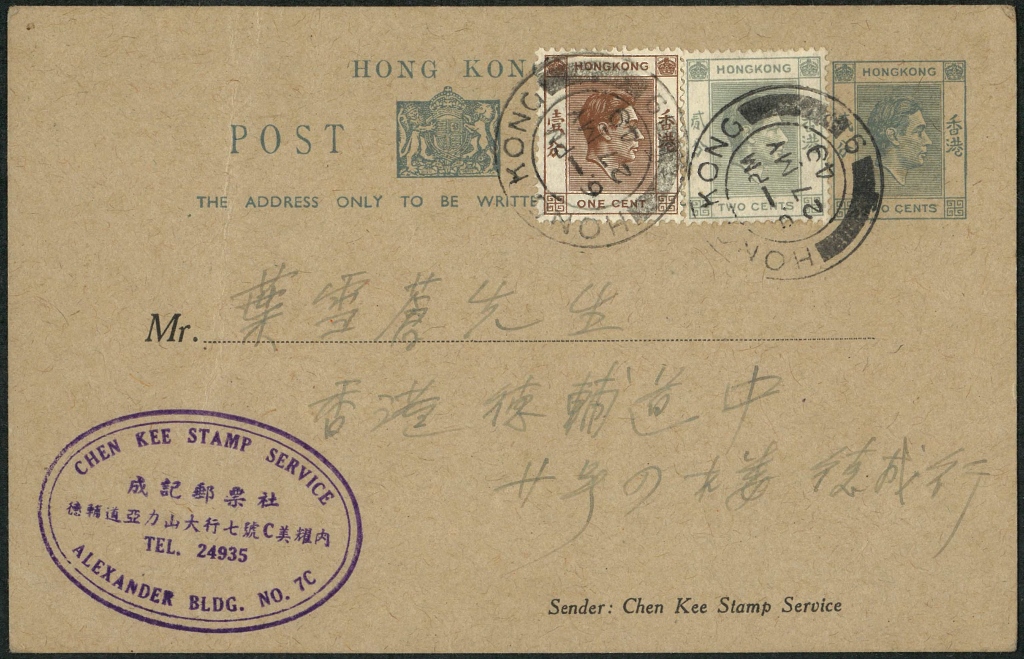 HONG KONG
POST
THE ADDRESS ONLY TO BE WRITTE
HONGKONG
壹 香港
ONE CENT
HONGKONG
貳 香港
TWO CENTS
HONGKONG
香港
TWO CENTS
HONG KONG
6
1 PM
27 MY
49
HONG KONG
Mr. 葉雪蕃先生
香港 德輔道中
廿号 德成行
CHEN KEE STAMP SERVICE
成記郵票社
德輔道亞力山大行七號C美耀內
TEL. 24935
ALEXANDER BLDG. NO. 7C
Sender: Chen Kee Stamp Service